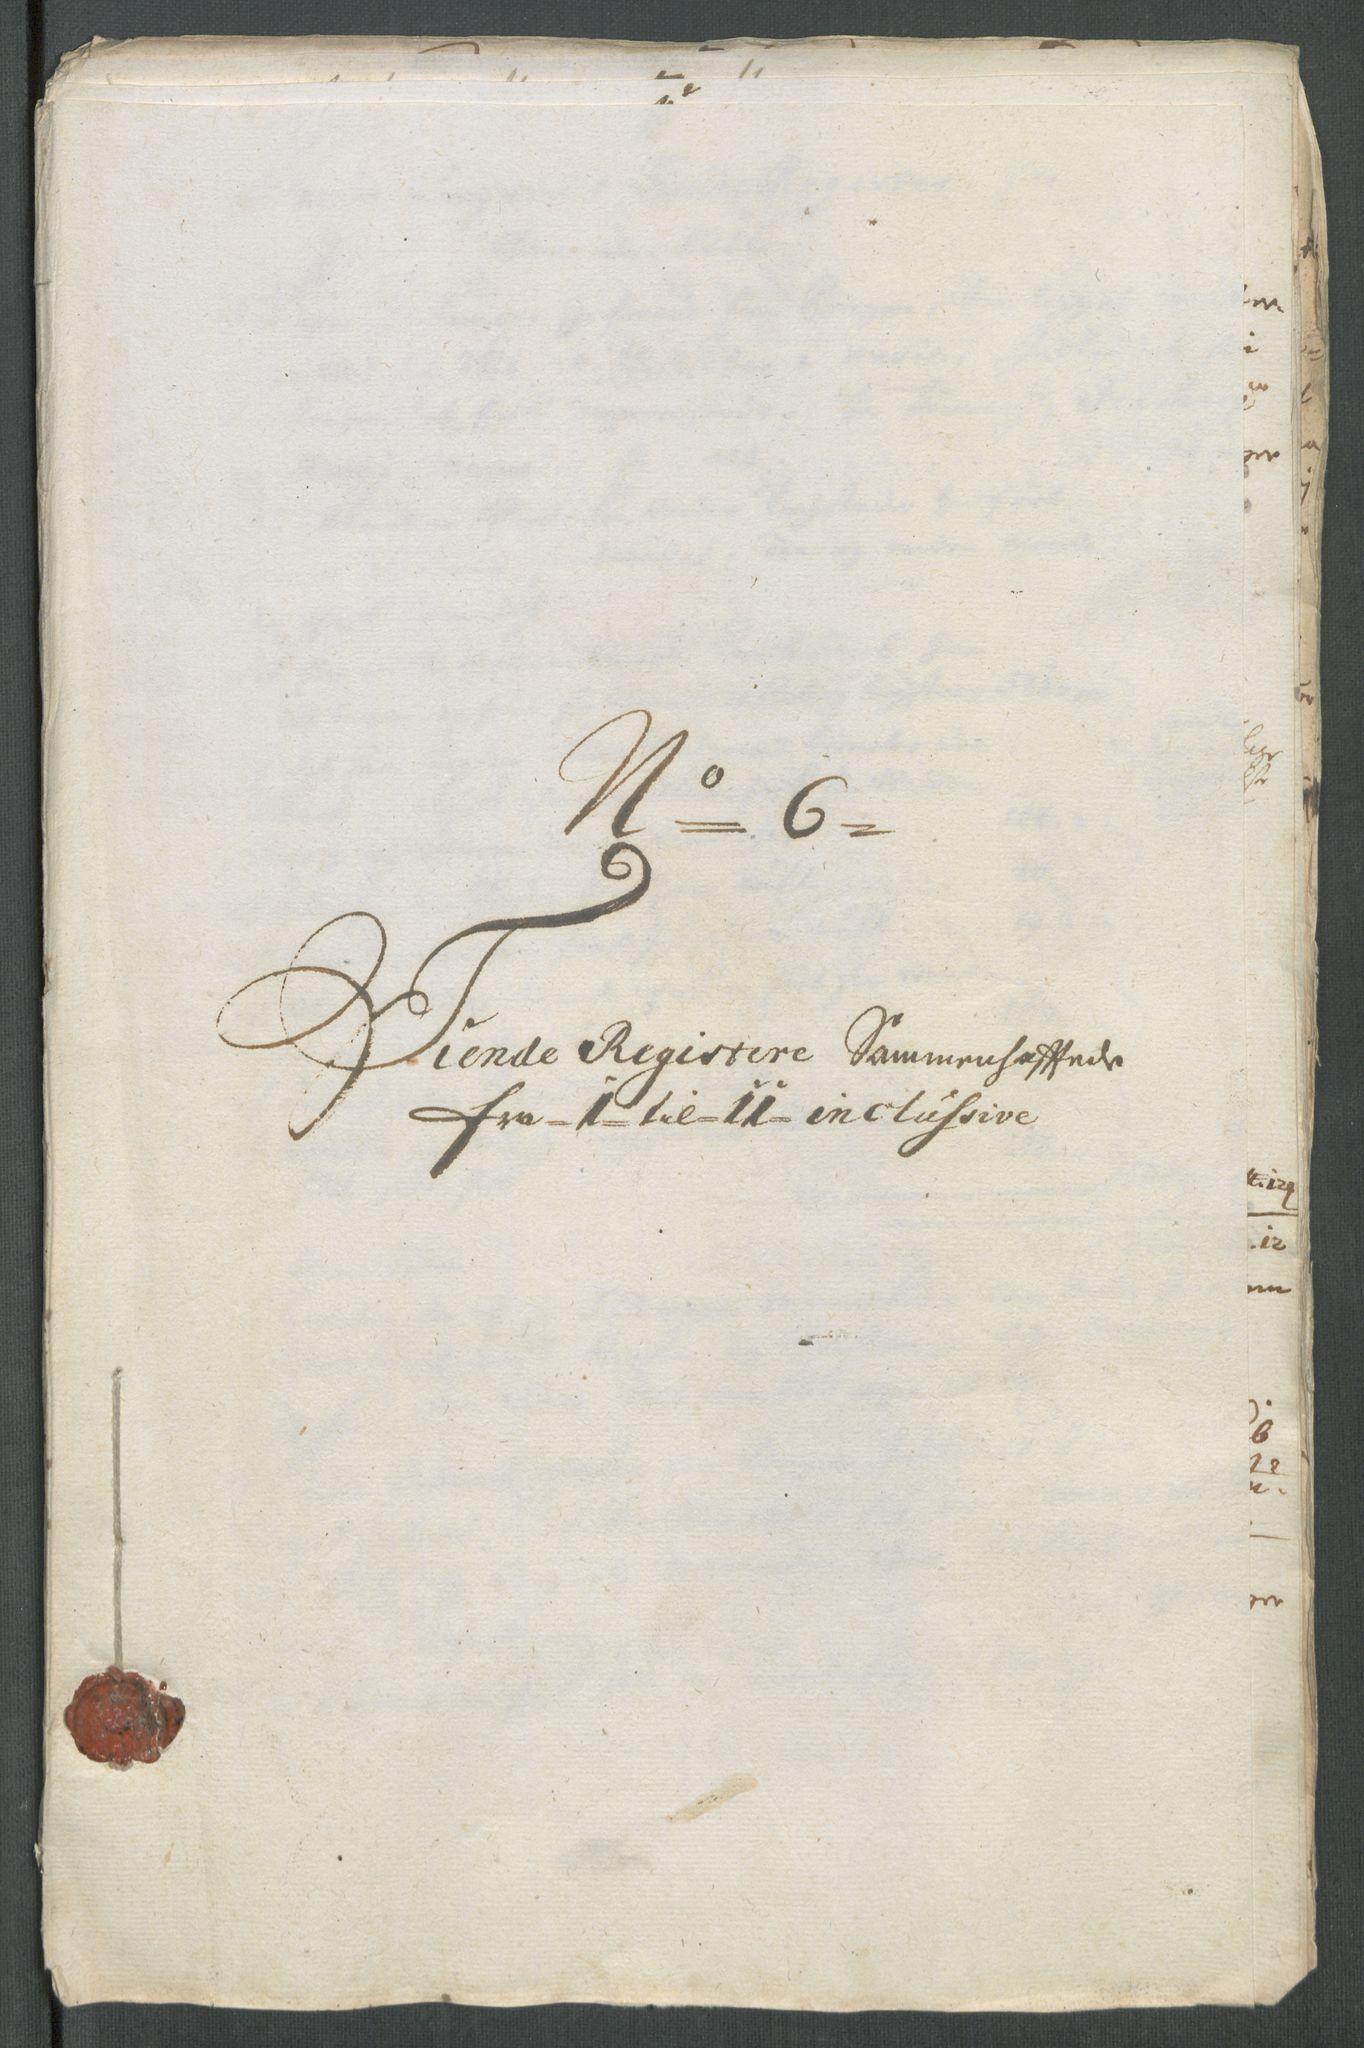 No = 6 =
Tiende Registere Sammenhæfftede
fra - 1 - til - 11 - inclussive